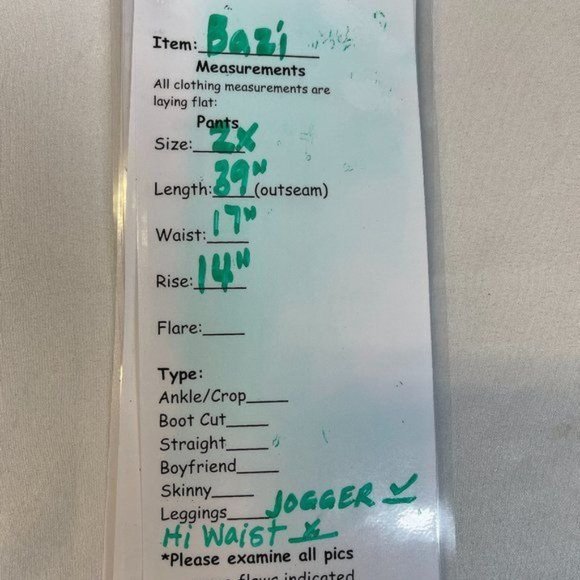 Item: Bazi
Measurements
All clothing measurements are
laying flat:
Pants
Size: 2X
Length: 39" (outseam)
Waist: 17"
Rise: 14"
Flare:____
Type:
Ankle/Crop____
Boot Cut____
Straight____
Boyfriend____
Skinny____
Leggings____ JOGGER ✓
Hi Waist x
*Please examine all pics
flaws indicated